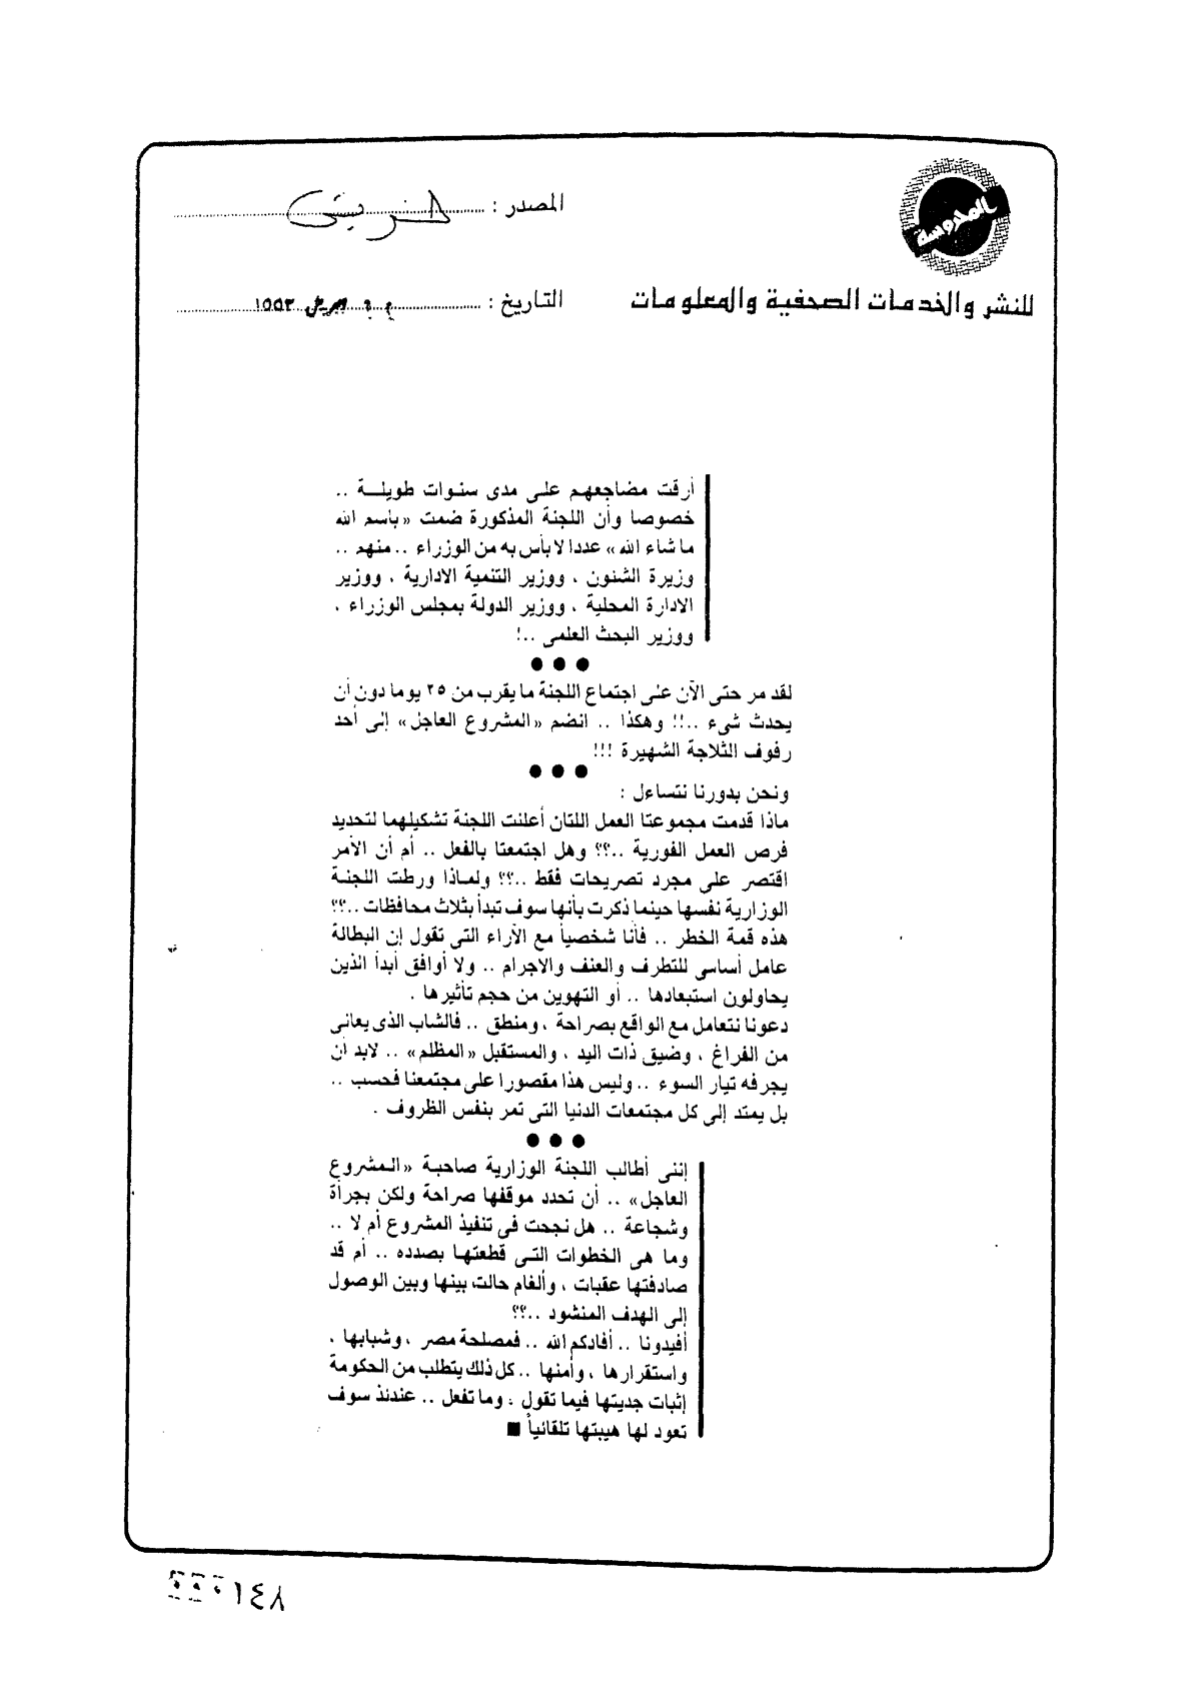 المحروسة
للنشر والخدمات الصحفية والمعلومات
المصدر :
التاريخ :
أرقت مضاجعهم على مدى سنوات طويلة ..
خصوصا وأن اللجنة المذكورة ضمت «باسم الله
ما شاء الله» عددا لا بأس به من الوزراء .. منهم ..
وزيرة الشئون ، ووزير التنمية الادارية ، ووزير
الادارة المحلية ، ووزير الدولة بمجلس الوزراء ،
ووزير البحث العلمى ..!
●●●
لقد مر حتى الآن على اجتماع اللجنة ما يقرب من ٢٥ يوما دون أن
يحدث شىء ..!! وهكذا .. انضم «المشروع العاجل» إلى أحد
رفوف الثلاجة الشهيرة !!!
●●●
ونحن بدورنا نتساءل :
ماذا قدمت مجموعتا العمل اللتان أعلنت اللجنة تشكيلهما لتحديد
فرص العمل الفورية ..؟؟ وهل اجتمعتا بالفعل .. أم أن الأمر
اقتصر على مجرد تصريحات فقط ..؟؟ ولماذا ورطت اللجنة
الوزارية نفسها حينما ذكرت بأنها سوف تبدأ بثلاث محافظات ..؟؟
هذه قمة الخطر .. فأنا شخصياً مع الآراء التى تقول إن البطالة
عامل أساسى للتطرف والعنف والاجرام .. ولا أوافق أبدأ الذين
يحاولون استبعادها .. أو التهوين من حجم تأثيرها .
دعونا نتعامل مع الواقع بصراحة ، ومنطق .. فالشاب الذى يعانى
من الفراغ ، وضيق ذات اليد ، والمستقبل «المظلم» .. لابد أن
يجرفه تيار السوء .. وليس هذا مقصورا على مجتمعنا فحسب ..
بل يمتد إلى كل مجتمعات الدنيا التى تمر بنفس الظروف .
●●●
إننى أطالب اللجنة الوزارية صاحبة «المشروع
العاجل» .. أن تحدد موقفها صراحة ولكن بجرأة
وشجاعة .. هل نجحت فى تنفيذ المشروع أم لا ..
وما هى الخطوات التى قطعتها بصدده .. أم قد
صادفتها عقبات ، وألغام حالت بينها وبين الوصول
إلى الهدف المنشود ..؟؟
أفيدونا .. أفادكم الله .. فمصلحة مصر ، وشبابها ،
واستقرارها ، وأمنها .. كل ذلك يتطلب من الحكومة
إثبات جديتها فيما تقول ، وما تفعل .. عندئذ سوف
تعود لها هيبتها تلقائياً ■
١٤٨